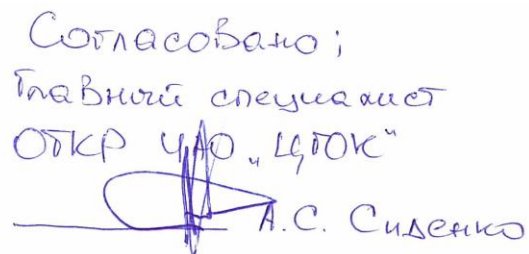 Согласовано;
Главный специалист
ОТКР ЧАО „ЦГОК“
А.С. Сиденко